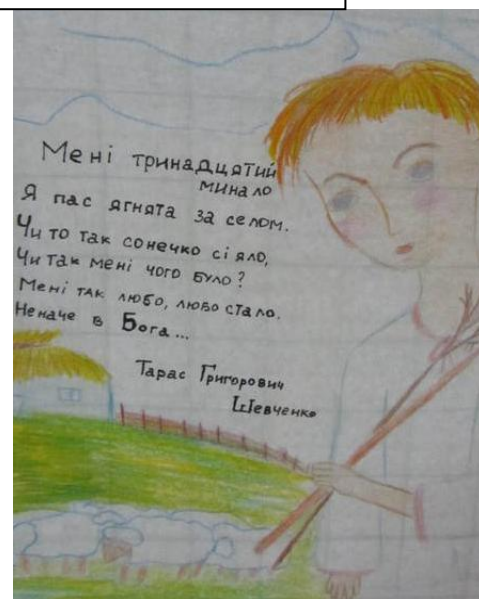 Мені тринадцятий
минало
Я пас ягнята за селом.
Чи то так сонечко сіяло,
Чи так мені чого було?
Мені так любо, любо стало.
Неначе в Бога...
Тарас Григорович
Шевченко